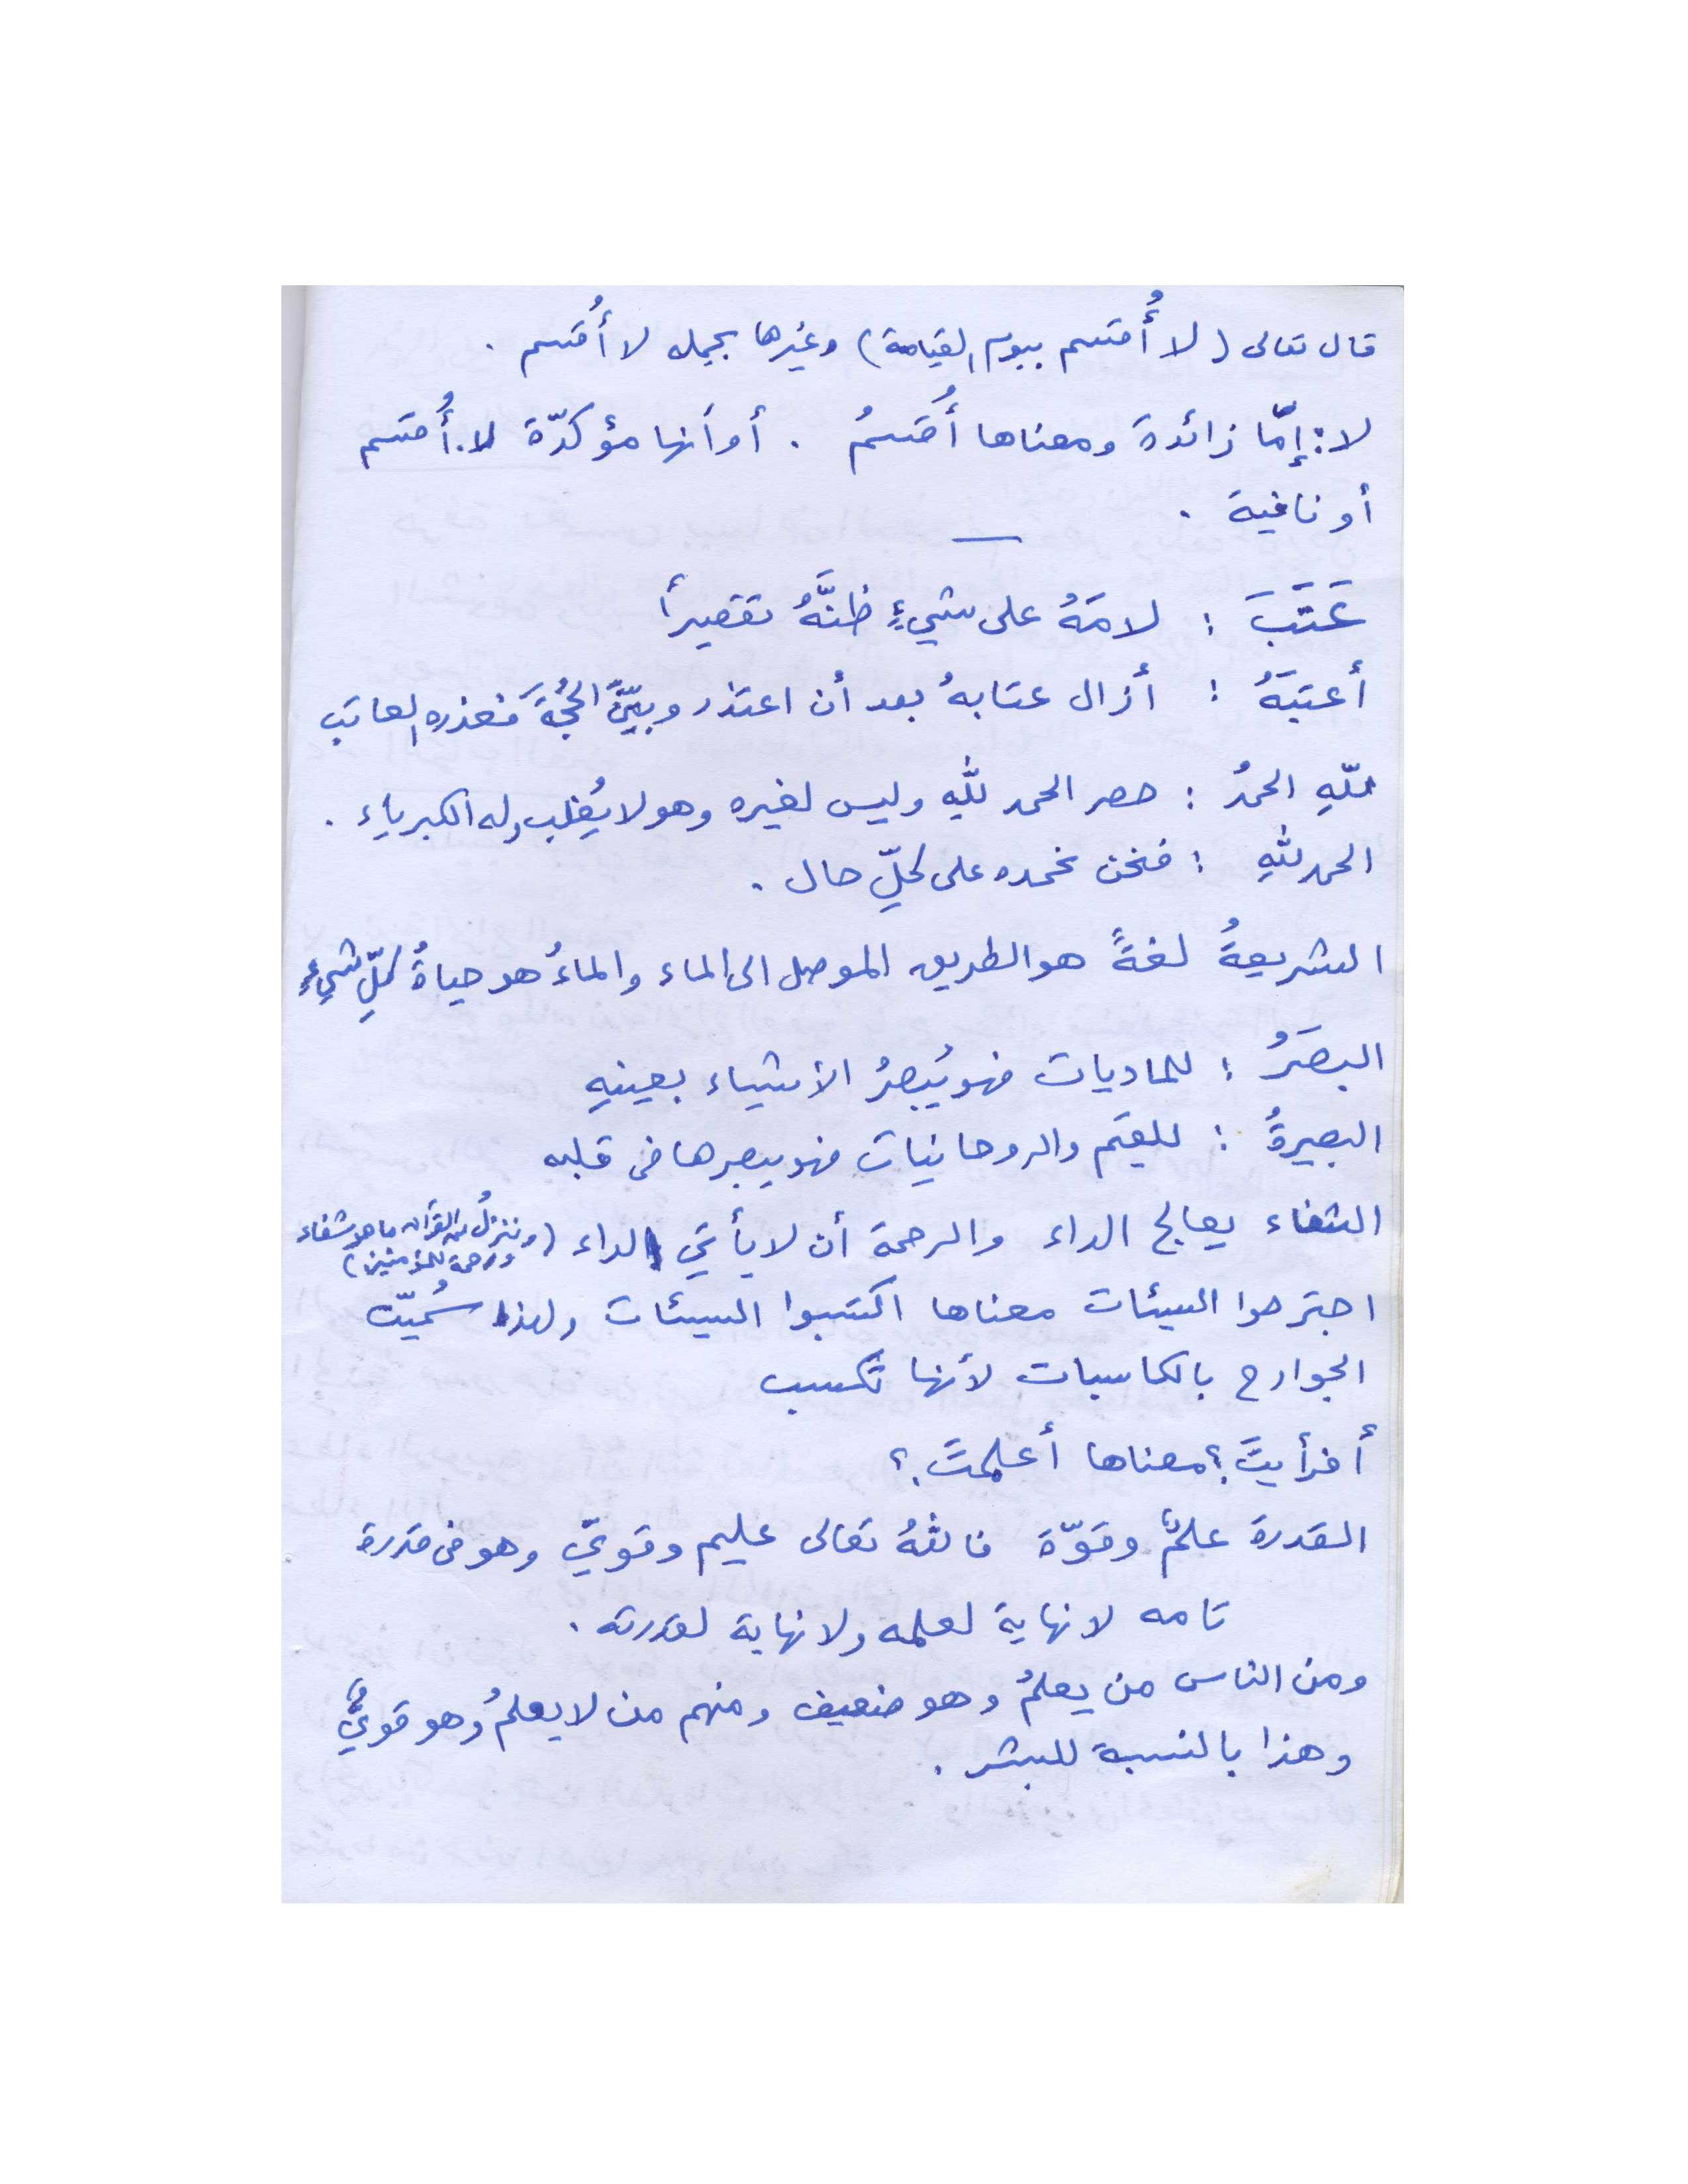 قال تعالى ( لا أُقسم بيوم القيامة ) وغيرها بجمل لا أُقسم .
لا : إمّا زائدة ومعناها أُقسمُ . أو أنها مؤكدّة لا . أُقسم
أو نافية .
عَتَبَ : لامَهُ على شيءٍ ظنَّهُ تقصيراً
أعتبَهُ : أزال عتابهُ بعد أن اعتذر وبيّنَ الحُجَّةَ فعذره العاتب
للّهِ الحمدُ : حصر الحمد للّهِ وليس لغيره وهو لا يُغلب وله الكبرياء .
الحمد للّهِ : فنحن نحمده على كلِّ حال .
الشريعةُ لغةً هو الطريق الموصل الى الماء والماءُ هو حياةُ كلِّ شيءٍ
البصَرُ : للماديات فهو يُبصرُ الأشياء بعينهِ
البصيرةُ : للقيَم والروحانيات فهو يبصرها في قلبه
الشفاء يعالج الداء والرحمة أن لا يأتي الداء ( وننزلُ من القرآن ما هو شفاء
ورحمة للمؤمنين )
اجترحوا السيئات معناها اكتسبوا السيئات ولهذا سُميّت
الجوارح بالكاسبات لأنها تكسب
أفرأيتَ ؟ معناها أعلمتَ ؟
القدرة علمٌ وقوّة فاللّهُ تعالى عليم وقويّ وهو في قدرة
تامه لا نهاية لعلمه ولا نهاية لقدرته .
ومن الناس من يعلمُ وهو ضعيف ومنهم من لا يعلمُ وهو قويٌّ
وهذا بالنسبة للبشر .